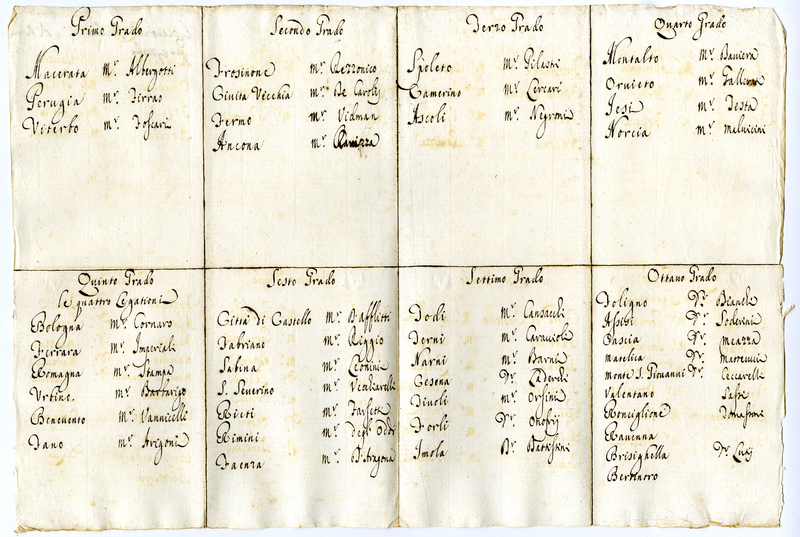 Primo Grado
Macerata mr. Albergotti
Perugia mr. Firrao
Viterbo mr. Foscari
Secondo Grado
Frosinone mr. Rezzonico
Civita Vecchia mr. De Carolij
Fermo mr. Vidman
Ancona mr.
Terzo Grado
Spoleto mr. Pilastri
Camerino mr. Cercari
Ascoli mr. Negroni
Quarto Grado
Montalto mr. Baviera
Orvieto mr.
Jesi mr. Testa
Norcia mr. Malvicini
Quinto Grado
le quattro Legationi
Bologna mr. Cornaro
Ferrara mr. Imperiali
Romagna mr. Stampa
Urbino mr. Barbarigo
Benevento mr. Vannicelli
Fano mr. Arigoni
Sesto Grado
Città di Castello mr.
Fabriano mr. Riggio
Sabina mr. Leonini
S. Severino mr. Vecchiarelli
Rieti mr. Farsetti
Rimini mr. degl'Oddi
Faenza mr. D'Aragona
Settimo Grado
Todi mr. Cansacchi
Terni mr. Caraccioli
Narni mr. Barni
Cesena Dr. Caderchi
Tivoli mr. Orsini
Forlì Dr. Onofrij
Imola Dr. Battistini
Ottavo Grado
Foligno Dr. Bianchi
Assisi Dr. Soderini
Cascia Dr. Meazza
Matelica Dr. Matteucci
Monte S. Giovanni Dr. Ceccarelli
Valentano
Ronciglione
Ravenna
Brisighella Dr. Luzj
Bertinoro